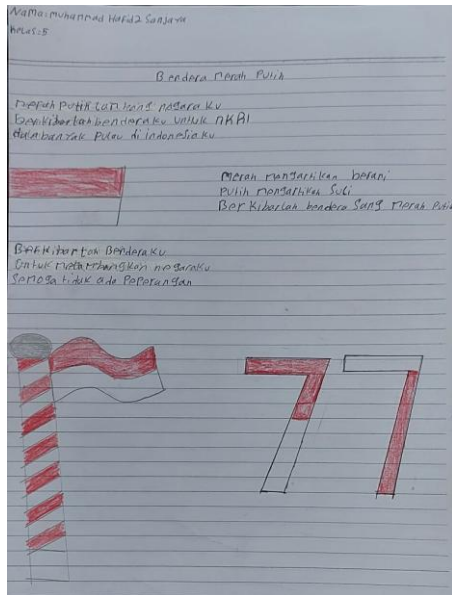 Nama: Muhammad Hafidz Sanjaya
Kelas: 5
Bendera Merah Putih
Merah Putih lambang negaraku
berkibarlah benderaku untuk NKRI
dan banyak pulau di indonesiaku
Merah mengartikan berani
Putih mengartikan Suci
Berkibarlah bendera Sang Merah Putih
Berkibarlah Benderaku
Untuk melambangkan negaraku
Semoga tidak ada Peperangan
77